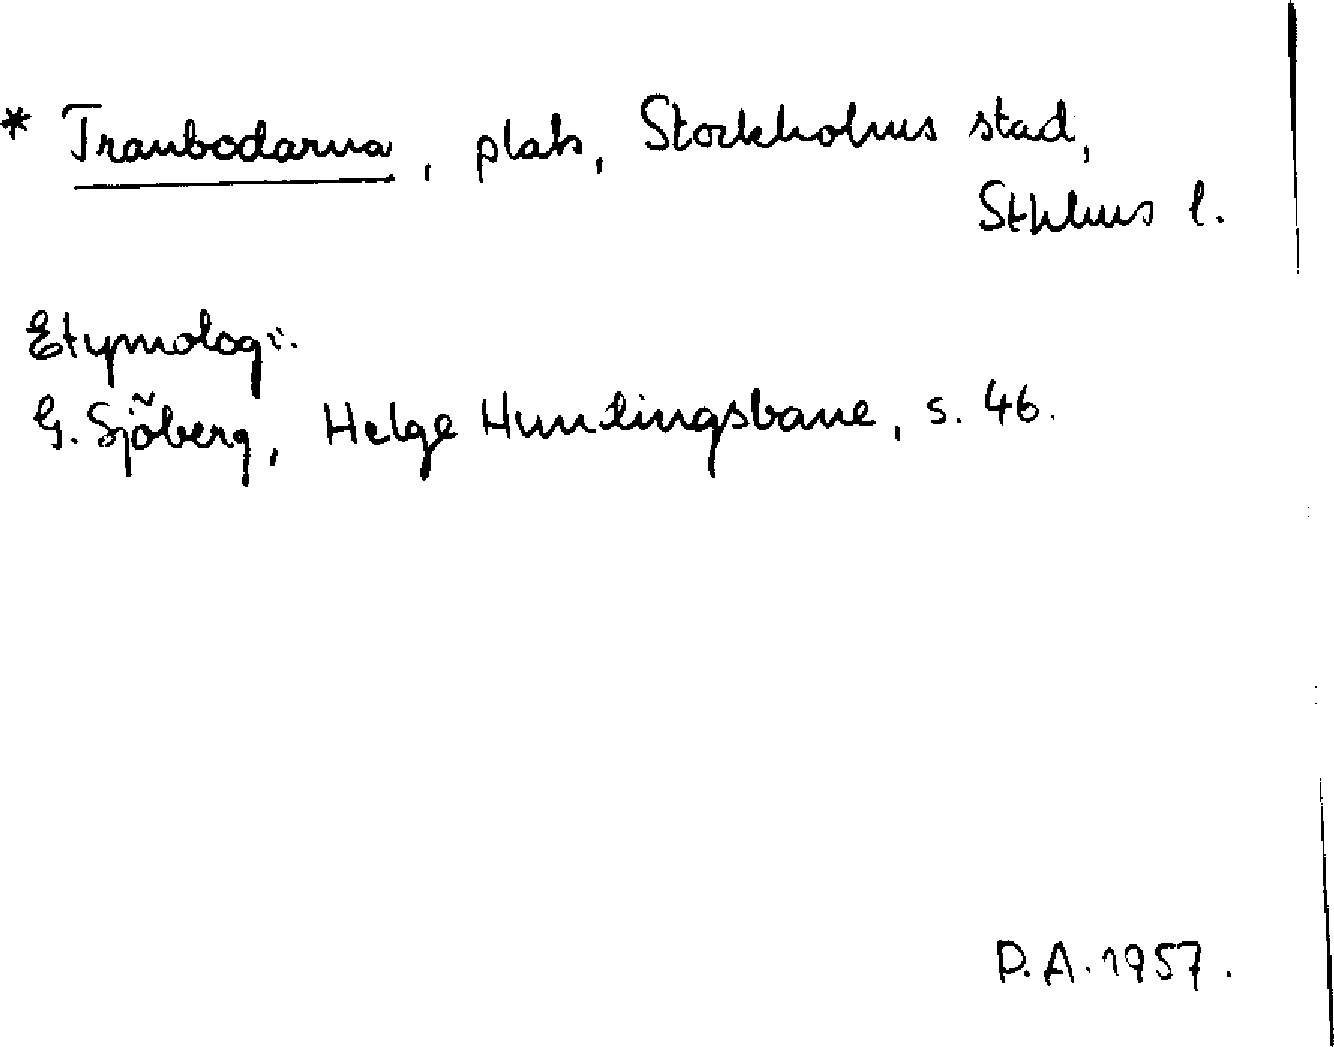 * Tranbodarna, plats, Stockholms stad,
Sthlms l.
Etymologi.
G. Sjöberg, Helge Hundingsbane, s. 46.
D.A. 1957.